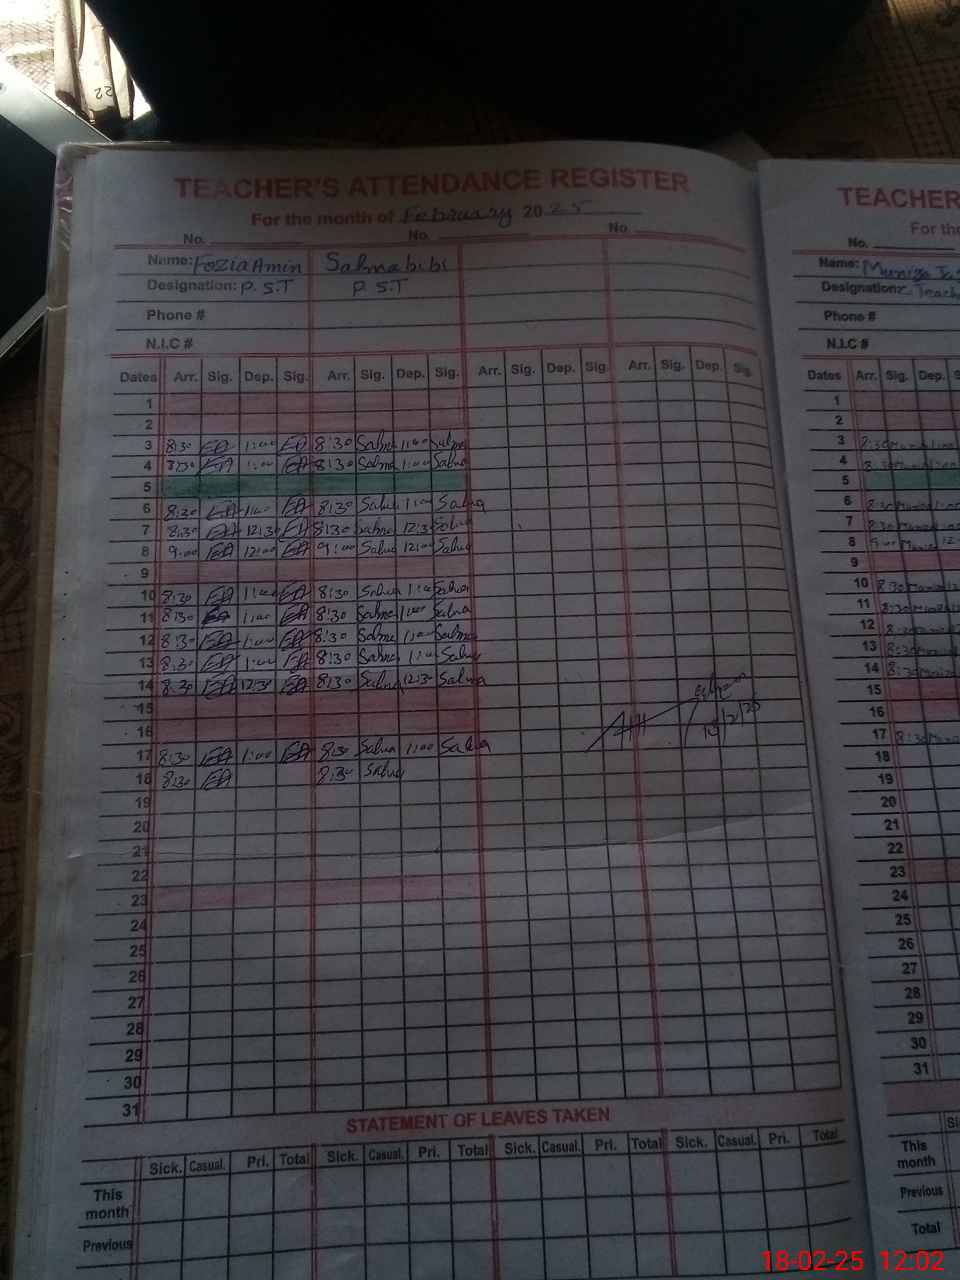 22
TEACHER'S ATTENDANCE REGISTER
For the month of February 2025
No. No. No.
Name: Fozia Amin Salma bibi
Designation: P.S.T P.S.T
Phone #
N.I.C #
Dates Arr. Sig. Dep. Sig. Arr. Sig. Dep. Sig. Arr. Sig. Dep. Sig. Arr. Sig. Dep. Sig.
1
2
3 8:30 EA 1:00 EA 8:30 Salma 1:00 Salma
4 8:30 EA 1:00 EA 8:30 Salma 1:00 Salma
5
6 8:30 EA 1:00 EA 8:30 Salma 1:00 Salma
7 8:30 EA 12:30 EA 8:30 Salma 12:30 Salma
8 9:00 EA 12:00 EA 9:00 Salma 12:00 Salma
9
10 8:30 EA 1:00 EA 8:30 Salma 1:00 Salma
11 8:30 EA 1:00 EA 8:30 Salma 1:00 Salma
12 8:30 EA 1:00 EA 8:30 Salma 1:00 Salma
13 8:30 EA 1:00 EA 8:30 Salma 1:00 Salma
14 8:30 EA 12:30 EA 8:30 Salma 12:30 Salma
15
16
17 8:30 EA 1:00 EA 8:30 Salma 1:00 Salma
18 8:30 EA 8:30 Salma
19
20
21
22
23
24
25
26
27
28
29
30
31
STATEMENT OF LEAVES TAKEN
Sick. Casual. Pri. Total Sick. Casual. Pri. Total Sick. Casual. Pri. Total Sick. Casual. Pri. Total
This month
Previous
TEACHER
For the
No.
Name:
Designation: Teach
Phone #
N.I.C #
Dates Arr. Sig. Dep. S
1
2
3 8:30
4 8:30
5
6 8:30
7 8:30
8 9:00
9
10 8:30
11 8:30
12 8:30
13 8:30
14 8:30
15
16
17 8:30
18
19
20
21
22
23
24
25
26
27
28
29
30
31
This month
Previous
Total
18-02-25 12:02